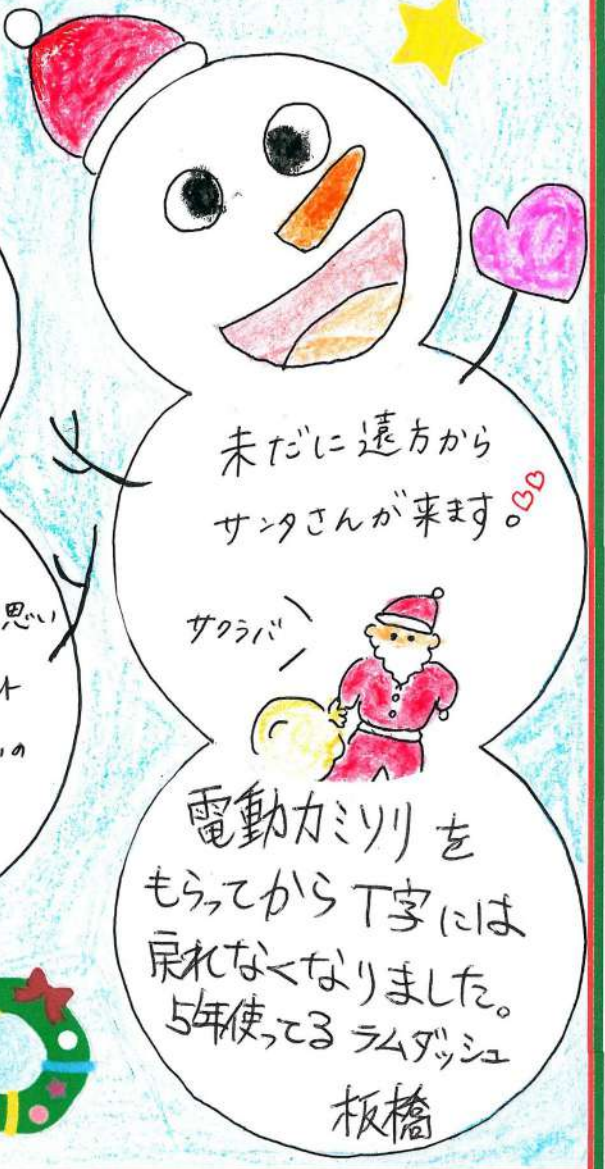 未だに遠方から
サンタさんが来ます。
サクラバ
電動カミソリを
もらってからT字には
戻れなくなりました。
5年使ってるラムダッシュ
板橋
思い
ト
の